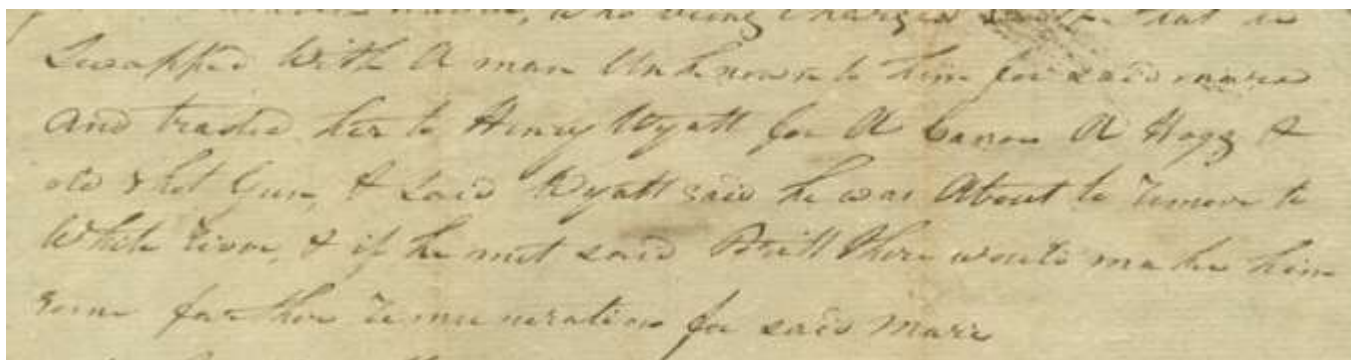 who being charged that he
Swapped With A man Unknown to him for said mare
And traded her to Henry Wyatt for A Canoe A Hogg &
old Shot Gun, & said Wyatt said he was About to remove to
White river, & if he met said there would make him
some farther remuneration for said Mare